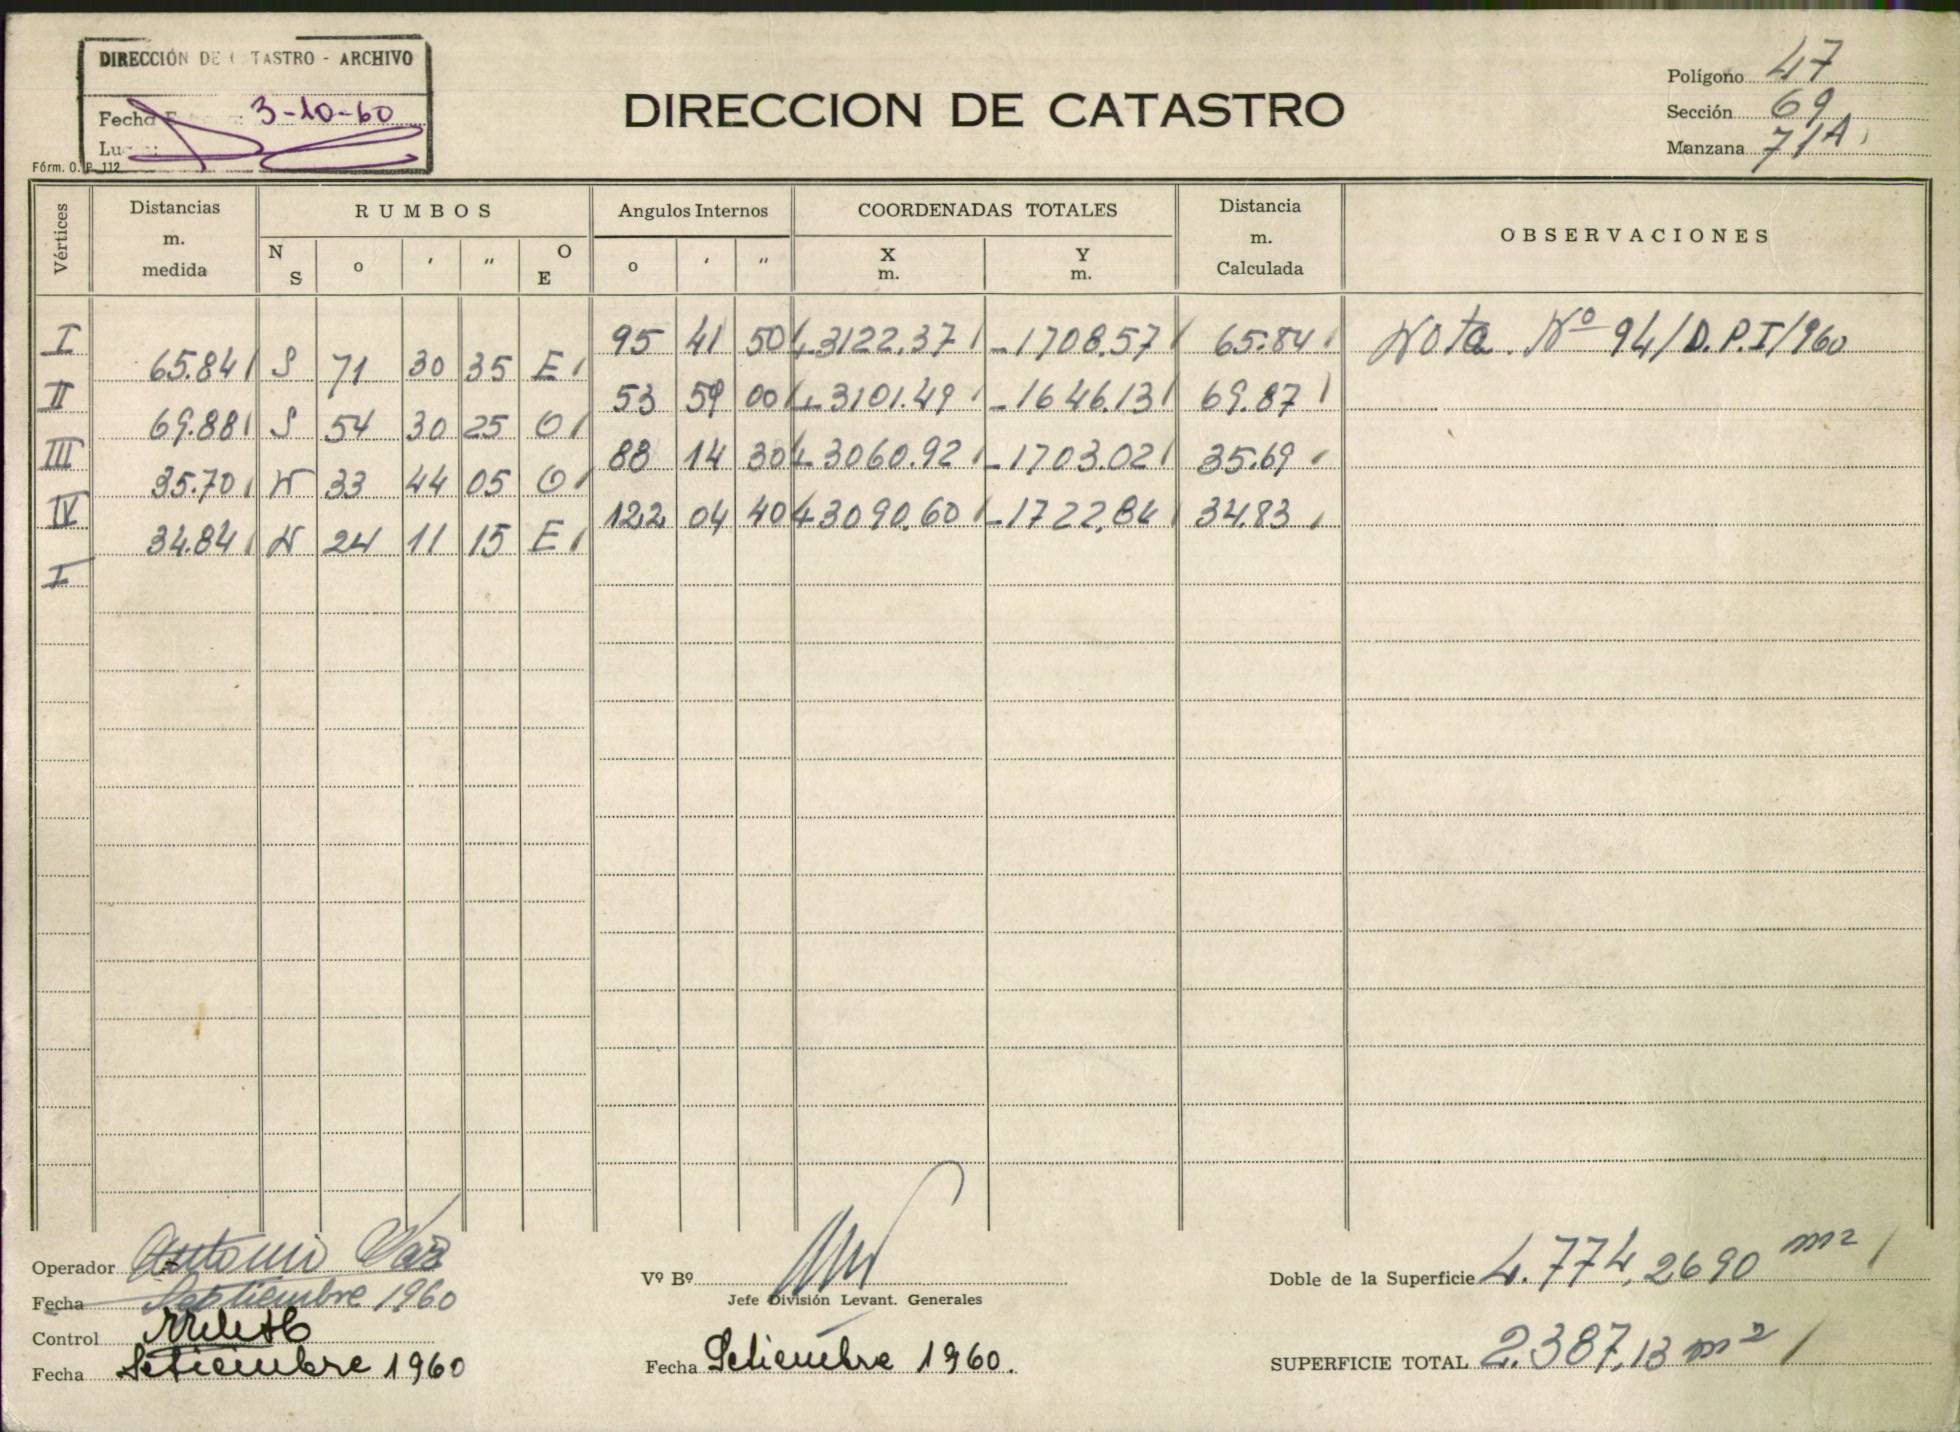 DIRECCIÓN DE C TASTRO - ARCHIVO
Fecha E : 3-10-60
Lu :
Fórm. O. P. 112
DIRECCION DE CATASTRO
Polígono 47
Sección 69
Manzana 71A
Vértices Distancias m. medida RUMBOS Angulos Internos COORDENADAS TOTALES Distancia m. Calculada OBSERVACIONES
N S o ' " O E o ' " X m. Y m.
I 95 41 50 +3122.37 -1708.57 65.84 Nota. Nº 94/D.P.I/960
65.84 S 71 30 35 E
II 53 59 00 +3101.49 -1646.13 69.87
69.88 S 54 30 25 O
III 88 14 30 +3060.92 -1703.02 35.69
35.70 N 33 44 05 O
IV 122 04 40 +3090.60 -1722,84 34.83
34.84 N 24 11 15 E
I
Operador Antonio
Fecha Septiembre 1960
Control
Fecha Setiembre 1960
Vº Bº
Jefe División Levant. Generales
Fecha Setiembre 1960.
Doble de la Superficie 4.774,2690 m²
SUPERFICIE TOTAL 2.387,13 m²